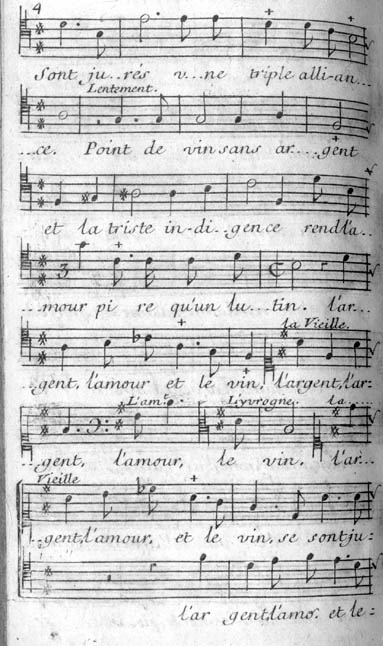 4
Sont ju..rés v...ne triple alli-an...
Lentement.
...ce. Point de vin sans ar...gent
et la triste in-di..gence rend l'a...
3
...mour pi re qu'un lu...tin. l'ar...
la Vieille.
...gent, l'amour et le vin, l'argent, l'ar:
L'amr. L'yvrogne. la....
...gent, l'amour, le vin, l'ar...
Vieille
...gent, l'amour, et le vin, se sont ju-
l'ar gent, l'amo. et le=